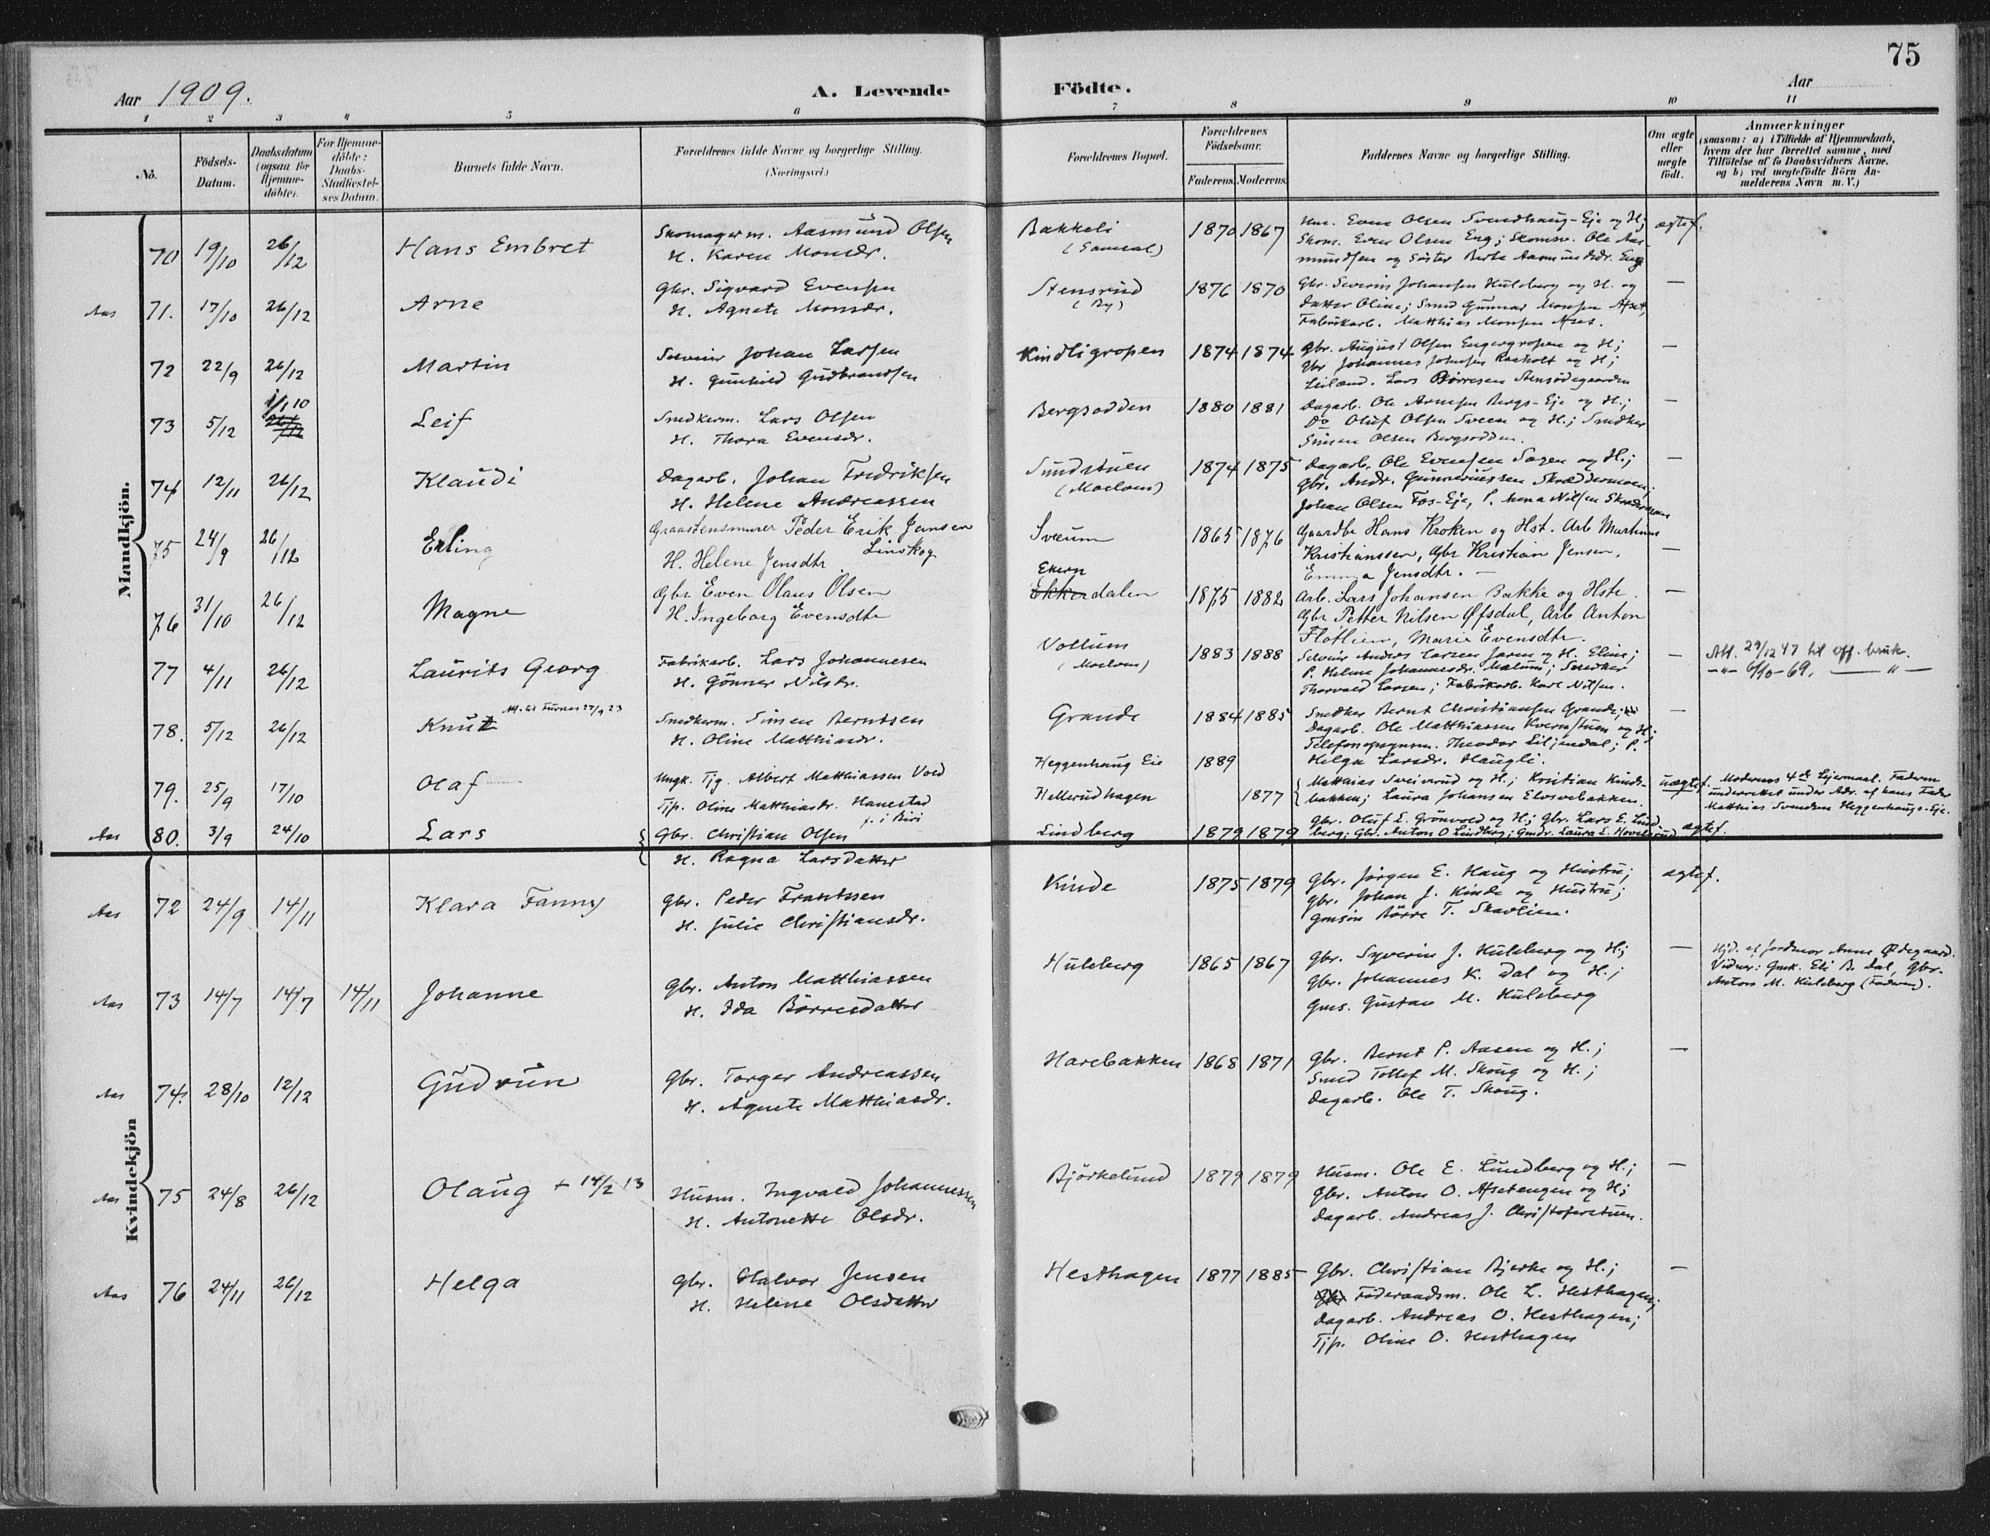 75
Aar 1909.
A. Levende Födte.
Aar
1 2 3 4 5 6 7 8 9 10 11
No.
Födsels-Datum.
Daabsdatum (ogsaa for Hjemme-döbte).
For Hjemme-döbte: Daabs-Stadfæstel-ses Datum.
Barnets fulde Navn.
Forældrenes fulde Navne og borgerlige Stilling. (Næringsvei.)
Forældrenes Bopæl.
Forældrenes Födselsaar.
Faderens. Moderens.
Faddernes Navne og borgerlige Stilling.
Om ægte eller uægte födt.
Anmærkninger
(saasom: a) i Tilfælde af Hjemmedaab, hvem der har forrettet samme, med Tilföielse af to Daabsvidners Navne, og b) ved uægtefödte Börn An-melderens Navn m. V.)
Mandkjön.
70 19/10 26/12 Hans Embret Skomagerm. Aasmund Olsen Bakkeli 1870 1867 Hm. Even Olsen Svendhaug-Eje og H; ægtef.
H. Karen Monsdr. (Samsal) Skom. Even Olsen Eng; Skomsv. Ole Aas-
mundsen og Söster Berte Aasmundsdr. Eng
Aas 71. 17/10 26/12 Arne Gbr. Sigvard Evensen Stensrud 1876 1870 Gbr. Severin Johansen Hulsberg og H. og —
H. Agnete Monsdr. (By) Datter Oline; Smed Gunnar Monsen Afset,
Fabrikarb. Matthias Monsen Afset.
72 22/9 26/12 Martin Selveier Johan Larsen Kindligropen 1874 1874 Gbr. August Olsen Engergropen og H; —
H. Gunhild Gudbrandsen Gbr Johannes Johnsen Raaholt og H;
Leiland. Lars Börresen Stensødegaarden
73 5/12 1/1 10 26/12 Leif Snedkerm. Lars Olsen Bergsodden 1880 1881 Dagarb. Ole Arnesen Bergs-Eje og H.; —
H. Thora Evensdr. Do Oluf Olsen Sveen og H.; Snedker
Simen Olsen Bergsodden.
74 12/11 26/12 Klaudi Dagarb. Johan Fredriksen Sundstuen 1874 1875 Dagarb. Ole Evensen Sagen og H.; —
H. Helene Andreassen (Moelven) Gbr. Andr. Gunneriussen Skræddermoen;
Johan Olsen Fos-Eje, P. Anna Nilsen
75 24/9 26/12 Erling Graastensmurer Peder Erik Jensen Sveum 1865 1876 Gaardbr Hans Kroken og Hst. Arb Martinus
H. Helene Jensdtr. Linskog Kristianssen, Gbr Kristian Jensen, —
Emma Jensdtr. —
76 31/10 26/12 Magne Gbr Even Olaus Olsen Ekern Ekkerdalen 1875 1882 Arb. Lars Johansen Bakke og Hste. —
H. Ingeborg Evensdtr Gbr Petter Nilsen Øfsdal, Arb Anton
Flotlien, Marie Evensdtr.
77 4/11 26/12 Laurits Georg Fabrikarb. Lars Johannesen Vollum 1883 1888 Selveier Anders Larsen Jaren og H. Eline; — Att. 29/12 47 til off. bruk.
H. Gönner Nilsdr. (Moelven) P. Helene Johannesdr. Mælum; Snedker —"— 6/10-69. —"—
Thorvald Larsen; Fabrikarb. Karl Nilsen.
78. 5/12 26/12 Knut Att. til Furnes 27/9 23 Snedkerm. Simen Berntsen Grande 1884 1885 Snedker Bernt Christiansen Grande; —
H. Oline Matthiasdr. Dagarb. Ole Matthiassen Kvernstuen og H;
Telefonopsynsm. Theodor Liljendal; P.
Helga Larsdr. Haugli.
79. 25/9 17/10 Olaf Ungk. Tjg. Albert Matthiassen Vold Heggenhaug Eie 1889 Matthias Sveiserud og H.; Kristian Kinds- uægtef. Moderens 4de Lejermaal. Faderen
Tjp. Oline Matthiasdr. Hanestad f. i Biri Hellerudhagen 1877 bakken; Laura Johansen Elvsvebakken. underrettet under Adr. af hans Fader
Matthias Svendsen Heggenhaugs-Eje.
Aas 80. 3/9 24/10 Lars Gbr. Christian Olsen Lindberg 1879 1879 Gbr. Oluf E. Grönvold og H; Gbr. Lars E. Lund- ægtef.
berg; Gbr. Anton O Lindberg; Gmdr. Laura E. Hovelsrud
H. Ragna Larsdatter
Kvindekjön
Aas 72 24/9 14/11 Klara Fanny Gbr. Peder Frantssen Kinde 1875 1879 Gbr. Jörgen E. Haug og Hustru; ægtef.
H. Julie Christiansdr. Gbr. Johan J. Kinde og Hustru;
Gmsön Börre T. Skavlien.
Aas 73 14/7 14/7 14/11 Johanne Gbr. Anton Matthiassen Hulsberg 1865 1867 Gbr. Syverin J. Hulsberg og H; — Hjd. af Jordmor Anne Ødegaard.
H. Ida Börresdatter Gbr. Johannes K. Dal og H.; Vidner: Gmk. Eli B. Dal, Gbr.
Gms. Gustav M. Hulsberg Anton M. Hulsberg (Faderen).
Aas 74. 28/10 12/12 Gudrun Gbr. Torger Andreassen Harebakken 1868 1871 Gbr. Bernt P. Aasen og H.; —
H. Agnete Matthiasdr. Smed Tollef M. Skoug og H.;
Dagarb. Ole T. Skoug.
Aas 75 24/8 26/12 Olaug + 14/2 13 Husm. Ingvald Johannessen Björkelund 1879 1879 Husm. Ole E. Lundberg og H.; —
H. Antonette Olsdr. Gbr. Anton O. Afsetengen og H;
Dagarb. Andreas J. Christoferstuen.
Aas 76 24/11 26/12 Helga Gbr. Halvor Jensen Hesthagen 1877 1885 Gbr. Christian Bjerke og H.; —
H. Helene Olsdatter Föderaadsm. Ole L. Hesthagen;
Dagarb. Andreas O. Hesthagen;
Tjp. Oline O. Hesthagen